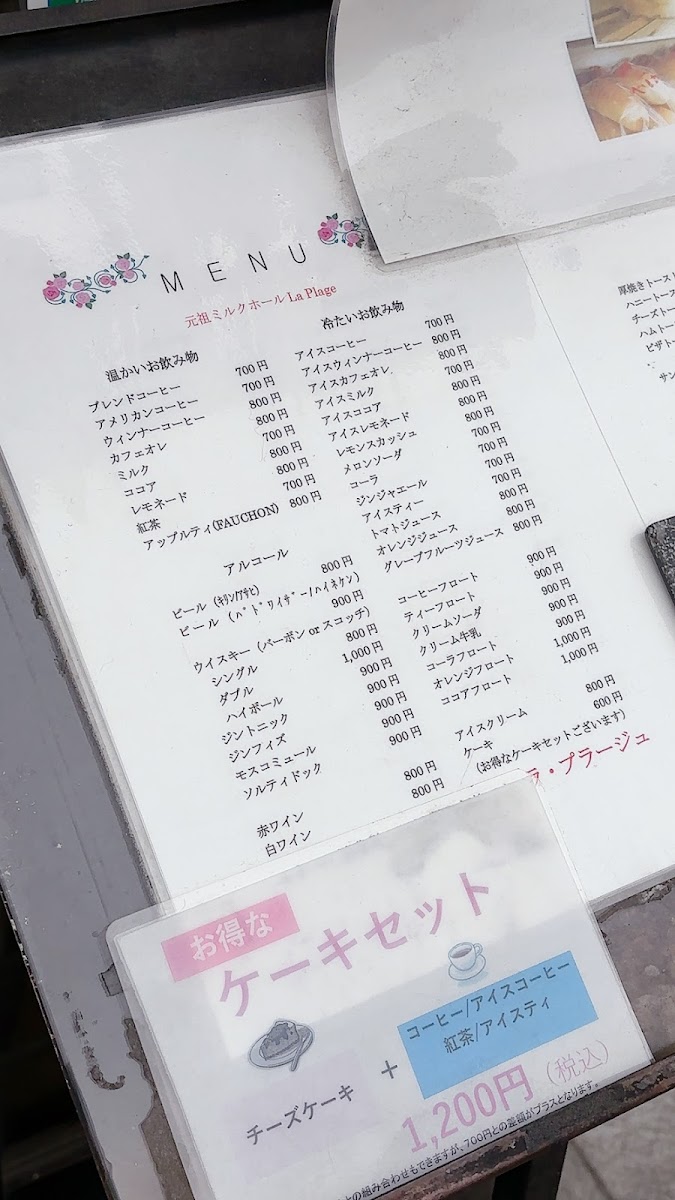 MENU
元祖ミルクホール La Plage
温かいお飲み物
ブレンドコーヒー 700円
アメリカンコーヒー 700円
ウィンナーコーヒー 800円
カフェオレ 800円
ミルク 700円
ココア 800円
レモネード 800円
紅茶 700円
アップルティ(FAUCHON) 800円
アルコール
ビール (ｷﾘﾝ/ｱｻﾋ) 800円
ビール (ﾊﾞﾄﾞﾜｲｻﾞｰ/ﾊｲﾈｹﾝ) 900円
ウイスキー (バーボン or スコッチ)
シングル 800円
ダブル 1,000円
ハイボール 900円
ジントニック 900円
ジンフィズ 900円
モスコミュール 900円
ソルティドック 900円
赤ワイン 800円
白ワイン 800円
冷たいお飲み物
アイスコーヒー 700円
アイスウィンナーコーヒー 800円
アイスカフェオレ 800円
アイスミルク 700円
アイスココア 800円
アイスレモネード 800円
レモンスカッシュ 800円
メロンソーダ 700円
コーラ 700円
ジンジャエール 700円
アイスティー 700円
トマトジュース 800円
オレンジジュース 800円
グレープフルーツジュース 800円
コーヒーフロート 900円
ティーフロート 900円
クリームソーダ 900円
クリーム牛乳 900円
コーラフロート 900円
オレンジフロート 1,000円
ココアフロート 1,000円
アイスクリーム 800円
ケーキ 600円
(お得なケーキセットございます)
ラ・プラージュ
厚焼きトースト
ハニートース
チーズトー
ハムトー
ピザト
サン
お得な
ケーキセット
チーズケーキ
+
コーヒー/アイスコーヒー
紅茶/アイスティ
1,200円 (税込)
との組み合わせもできますが、700円との差額がプラスとなります。